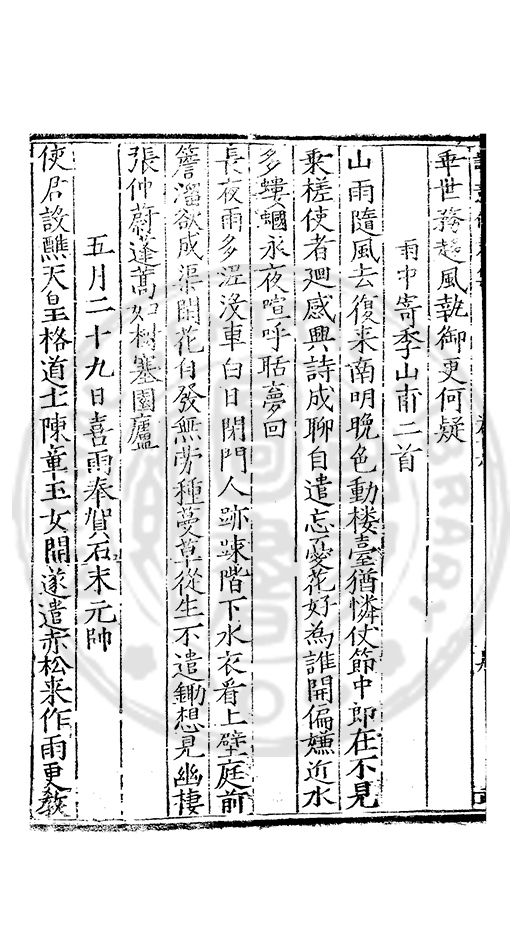 垂世務趍風執御更何疑
雨中寄季山甫二首
山雨隨風去復来南明晚色動楼臺猶憐仗節中郎在不見
乘槎使者廻感興詩成聊自遣忘憂花好為誰開偏嫌近水
多螻蟈永夜喧呼聒夣回
長夜雨多泥沒車白日閉門人跡踈階下水衣看上壁庭前
簷溜欲成渠閑花自發無勞種蔓草從生不遣鋤想見幽棲
張仲蔚蓬蒿如樹塞園廬
五月二十九日喜雨奉賀石末元帥
使君設醮天皇格道士陳章玉女開遂遣赤松来作雨更教